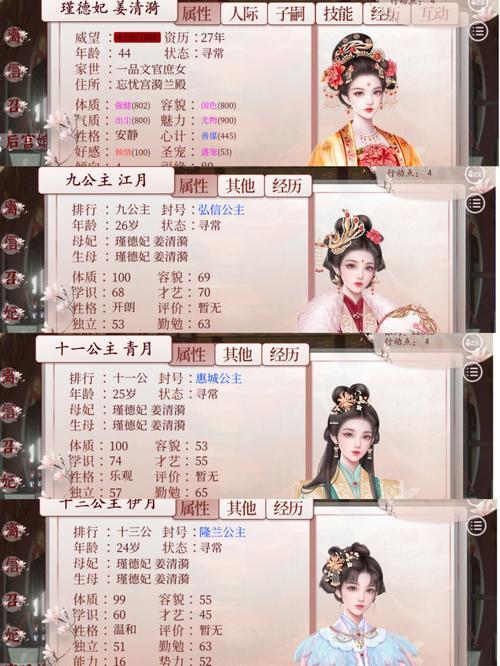 瑾德妃 姜清漪
属性 人际 子嗣 技能 经历 互动
行动点: 4
威望 资历:27年
年龄:44 状态:寻常
家世:一品文官庶女
住所:忘忧宫漪兰殿
体质:强健(802) 容貌:国色(800)
气质:出尘(800) 魅力:尤物(900)
性格:安静 心计:善谋(445)
好感:倾情(100) 圣宠:盛宠(53)
离
宫
召
九公主 江月
属性 其他 经历
行动点: 4
排行:九公主 封号:弘信公主
年龄:26岁 状态:寻常
母妃:瑾德妃 姜清漪
生母:瑾德妃 姜清漪
体质:100 容貌:69
学识:68 才艺:70
性格:开朗 评价:暂无
独立:53 勤勉:63
离
宫
召
妃
十一公主 青月
属性 其他 经历
行动点: 4
排行:十一公 封号:惠城公主
年龄:25岁 状态:寻常
母妃:瑾德妃 姜清漪
生母:瑾德妃 姜清漪
体质:100 容貌:53
学识:74 才艺:55
性格:乐观 评价:暂无
独立:57 勤勉:65
离
宫
召
妃
十三公主 伊月
属性 其他 经历
排行:十三公 封号:隆兰公主
年龄:24岁 状态:寻常
母妃:瑾德妃 姜清漪
生母:瑾德妃 姜清漪
体质:99 容貌:55
学识:60 才艺:45
性格:温和 评价:暂无
独立:51 勤勉:62
能力:16 势力:52
离
宫
召
妃